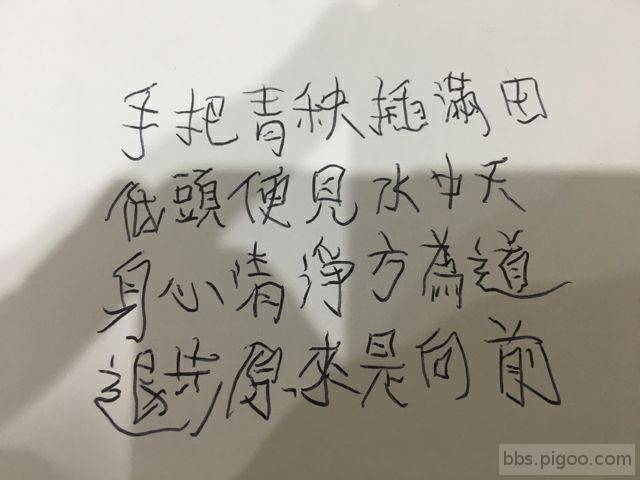 手把青秧插滿田
低頭便見水中天
身心清淨方為道
退步原來是向前
bbs.pigoo.com